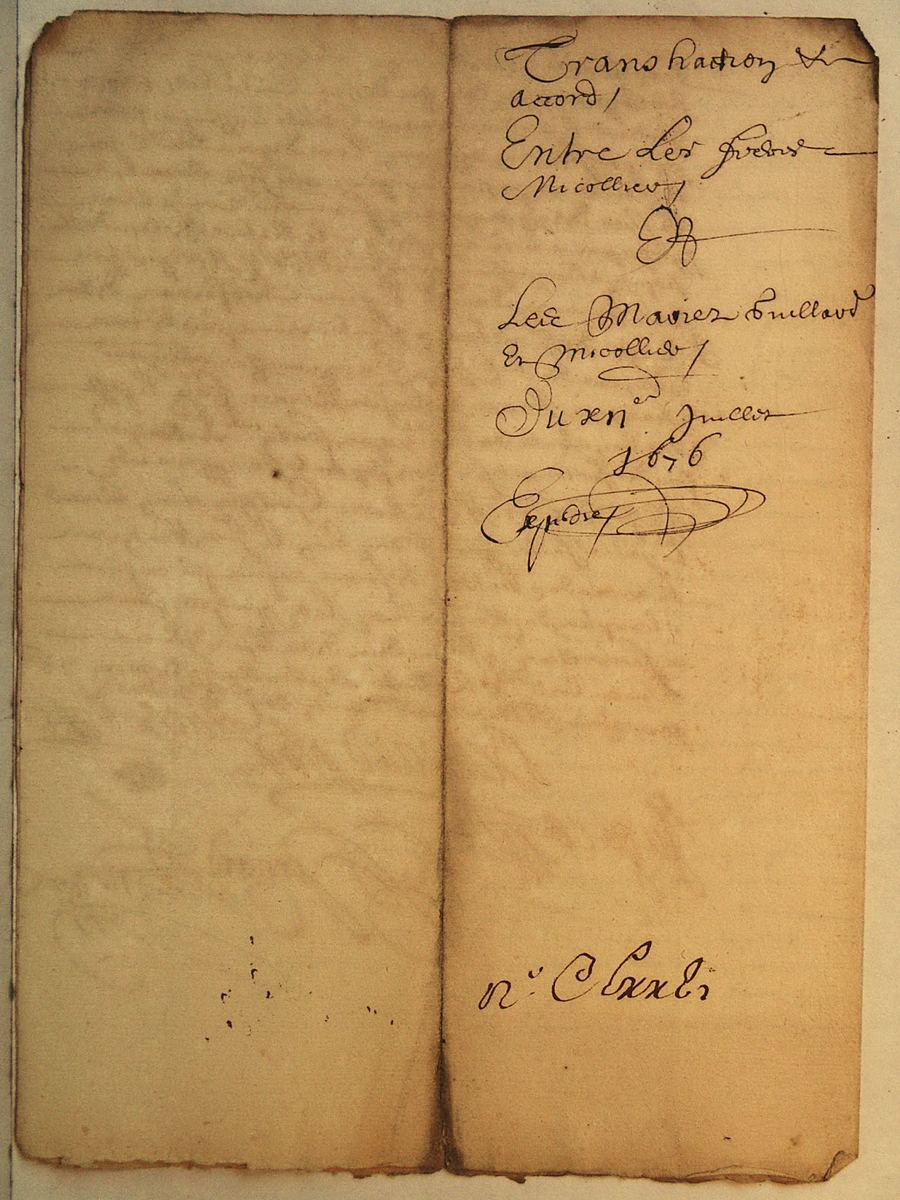 Transhaction &
accord /
Entre Les freres
Nicollier /
Et
Les Mariez Guillard
Et Nicollier /
Du xn.e Juillet
1676
Expedié /
N.o C